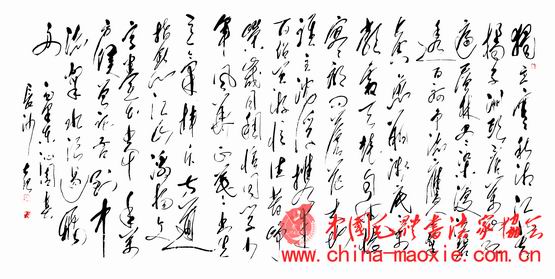 独立寒秋湘江北去
橘子洲头看万山红
遍层林尽染漫江碧
透百舸争流鹰击
长空鱼翔浅底万
类霜天竞自由怅
寥廓问苍茫大地
谁主沉浮携来
百侣曾游忆往昔峥
嵘岁月稠恰同学少
年风华正茂书生
意气挥斥方遒
指点江山激扬文
字粪土当年万
户侯曾记否到中
流击水浪遏飞
舟
毛泽东沁园春
长沙
中国毛體书法家协会
www.china-maoxie.com.cn